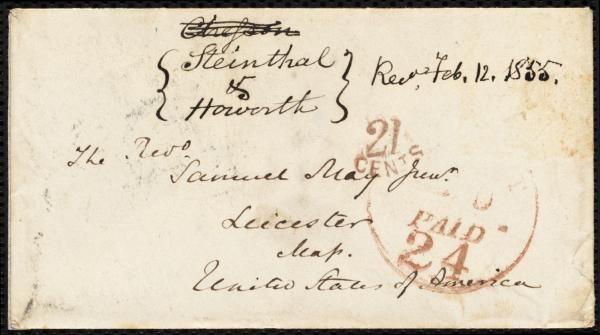 Chesson
Steinthal
&
Howorth
Recd. Feb. 12. 1855.
21
CENTS
The Revd.
Samuel May Junr.
Leicester
Mass.
United States of America
PAID
24